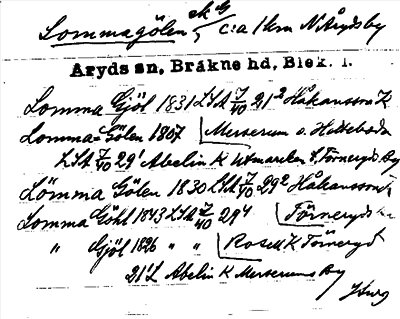 Lommagölen ca 1 km N Årydsby
Åryds sn, Bräkne hd, Blek. l.
Lomma Gjöl 1831 LSA 7/40 21² Håkansson K
Lomma-Gölen 1867 Merserum o. Hetteboda
LSA 7/40 29¹ Abelin K Utmarken t. Törneryds By
Lomma Gölen 1830 LSA 7/40 29² Håkansson K
Lomma Göhl 1843 LSA 7/40 29⁴ Törneryds
" Gjöl 1826 " " Rosell K Törneryd
21¹ L Abelin K Merserums By